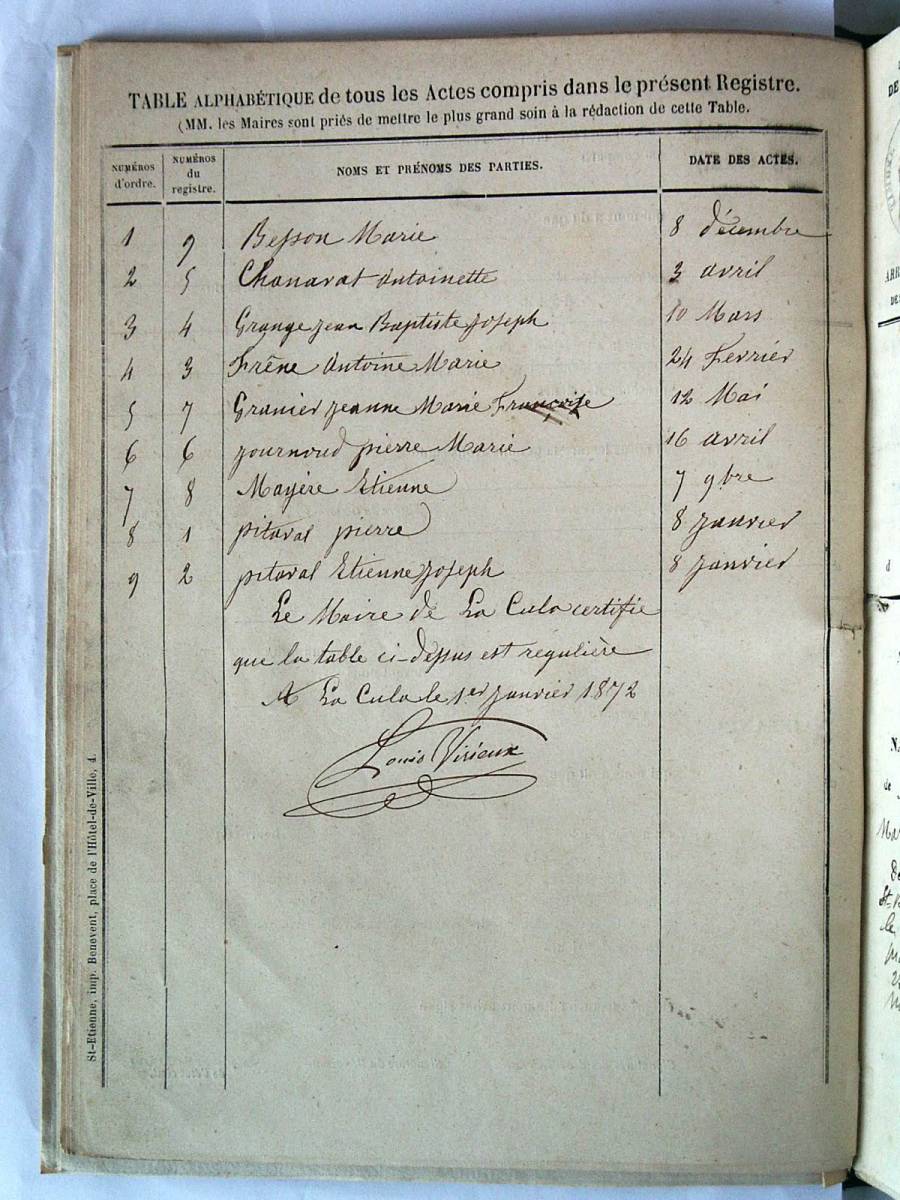 TABLE ALPHABÉTIQUE de tous les Actes compris dans le présent Registre.
(MM. les Maires sont priés de mettre le plus grand soin à la rédaction de cette Table.
NUMÉROS d'ordre. NUMÉROS du registre. NOMS ET PRÉNOMS DES PARTIES. DATE DES ACTES.
1 9 Besson Marie 8 décembre
2 5 Chanavat Antoinette 3 avril
3 4 Grange Jean Baptiste Joseph 10 Mars
4 3 Frêne Antoine Marie 24 Fevrier
5 7 Granier Jeanne Marie Françoise 12 Mai
6 6 Journoud pierre Marie 16 avril
7 8 Mayère Etienne 7 9bre
8 1 pitaval pierre 8 Janvier
9 2 pitaval Etienne Joseph 8 Janvier
Le Maire de La Cula certifie
que la table ci-dessus est régulière
A La Cula le 1er Janvier 1872
Louis Virieux
St-Etienne, imp. Benevent, place de l'Hôtel-de-Ville, 4.